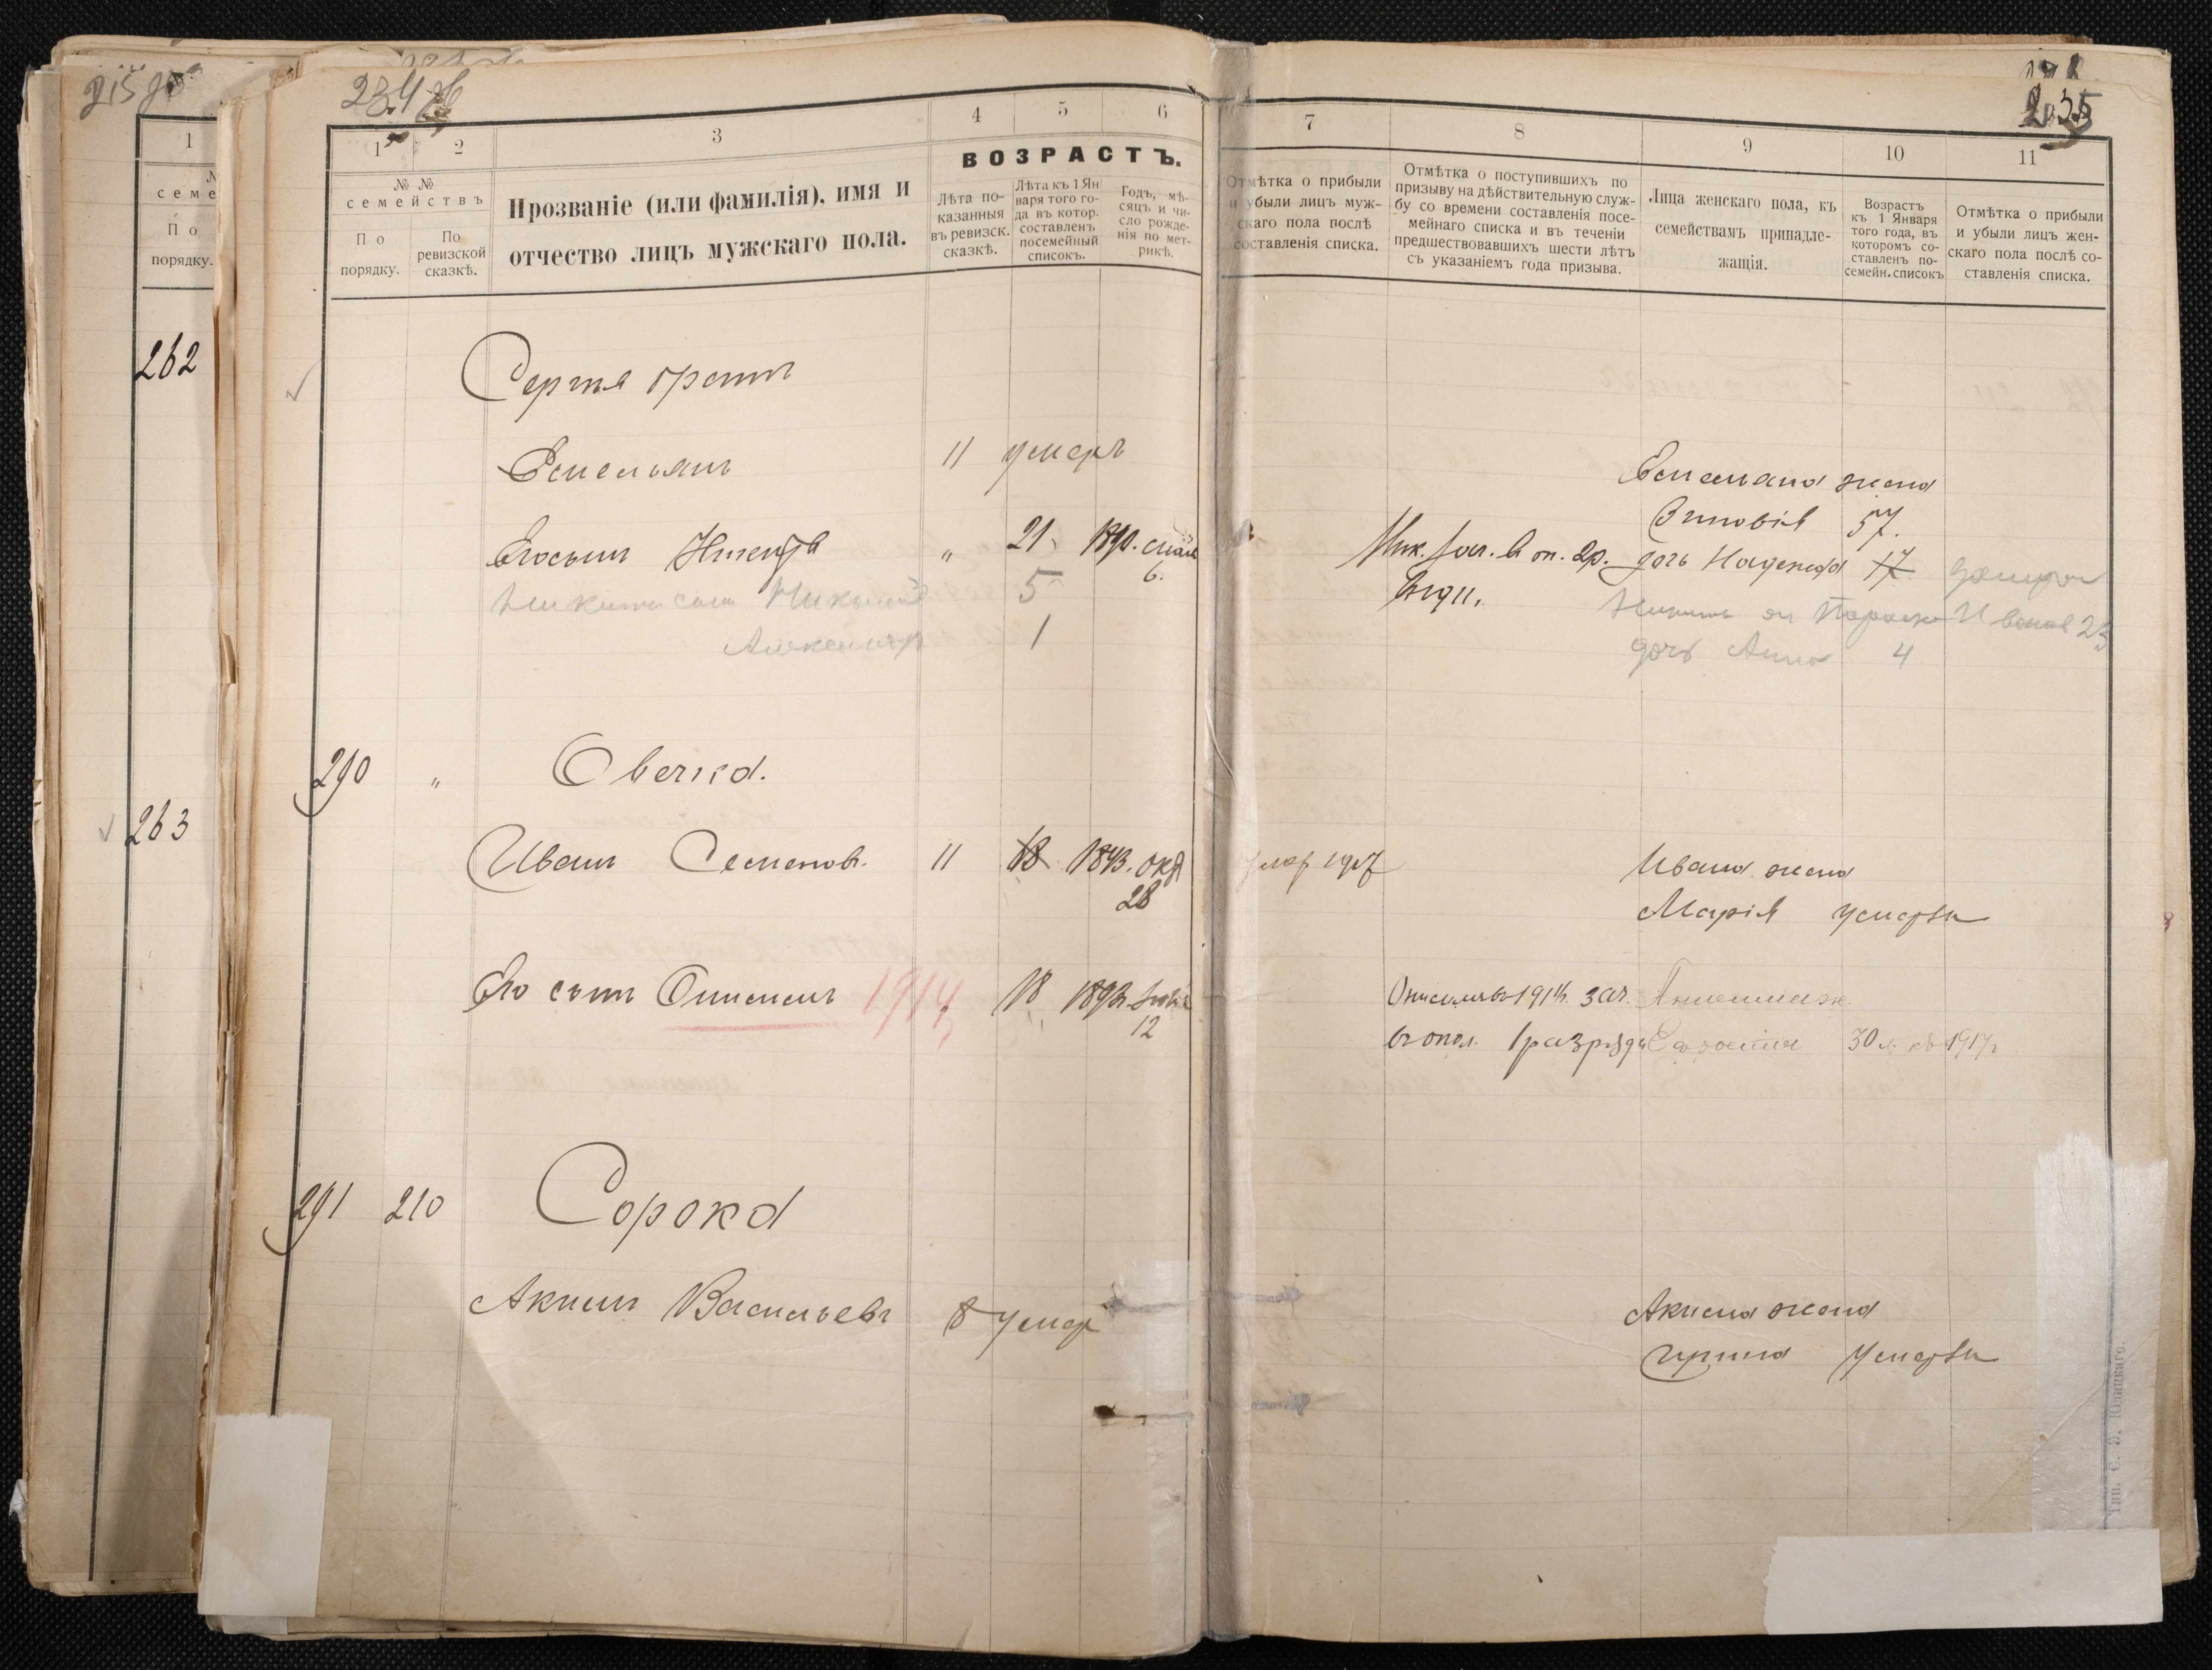 215
234
235
1
2
3
4
5
6
ВОЗРАСТЪ.
№ №
семействъ
По
порядку.
По
ревизской
сказкѣ.
Прозваніе (или фамилія), имя и
отчество лицъ мужскаго пола.
Лѣта по-
казанныя
въ ревизск.
сказкѣ.
Лѣта къ 1 Ян
варя того го-
да въ котор.
составленъ
посемейный
списокъ.
Годъ, мѣ-
сяцъ и чи-
сло рожде-
нія по мет-
рикѣ.
7
8
9
10
11
Отмѣтка о прибыли
и убыли лицъ муж-
скаго пола послѣ
составленія списка.
Отмѣтка о поступившихъ по
призыву на дѣйствительную служ-
бу со времени составленія посе-
мейнаго списка и въ теченіи
предшествовавшихъ шести лѣтъ
съ указаніемъ года призыва.
Лица женскаго пола, къ
семействамъ принадле-
жащія.
Возрастъ
къ 1 Января
того года, въ
которомъ со-
ставленъ по-
семейн. списокъ
Отмѣтка о прибыли
и убыли лицъ жен-
скаго пола послѣ со-
ставленія списка.
1
семе
По
порядку.
262
263
Сергѣя братъ
Емельянъ 11 умеръ
Емельяна жена
Зиновія 57.
Его сынъ Никита " 21 1890. мая
6.
Ник. зач. в оп. 2р.
дочь Надежда 17
5
Александръ 1
дочь Анна 4
290 " Овечка.
Иванъ Семеновъ. 11 18 1893. окт
28
умер 1917
Ивана жена
Марія умерла
Его сынъ Онисимъ 1914 18 1893
12
Онисимъ въ 1914. зач.
въ опол. 1 разряда
30 л. къ 1917 г
291 210 Сорока
Акимъ Васильевъ 8 умер
Акима жена
Ирина умерла
Тип. С. Э.